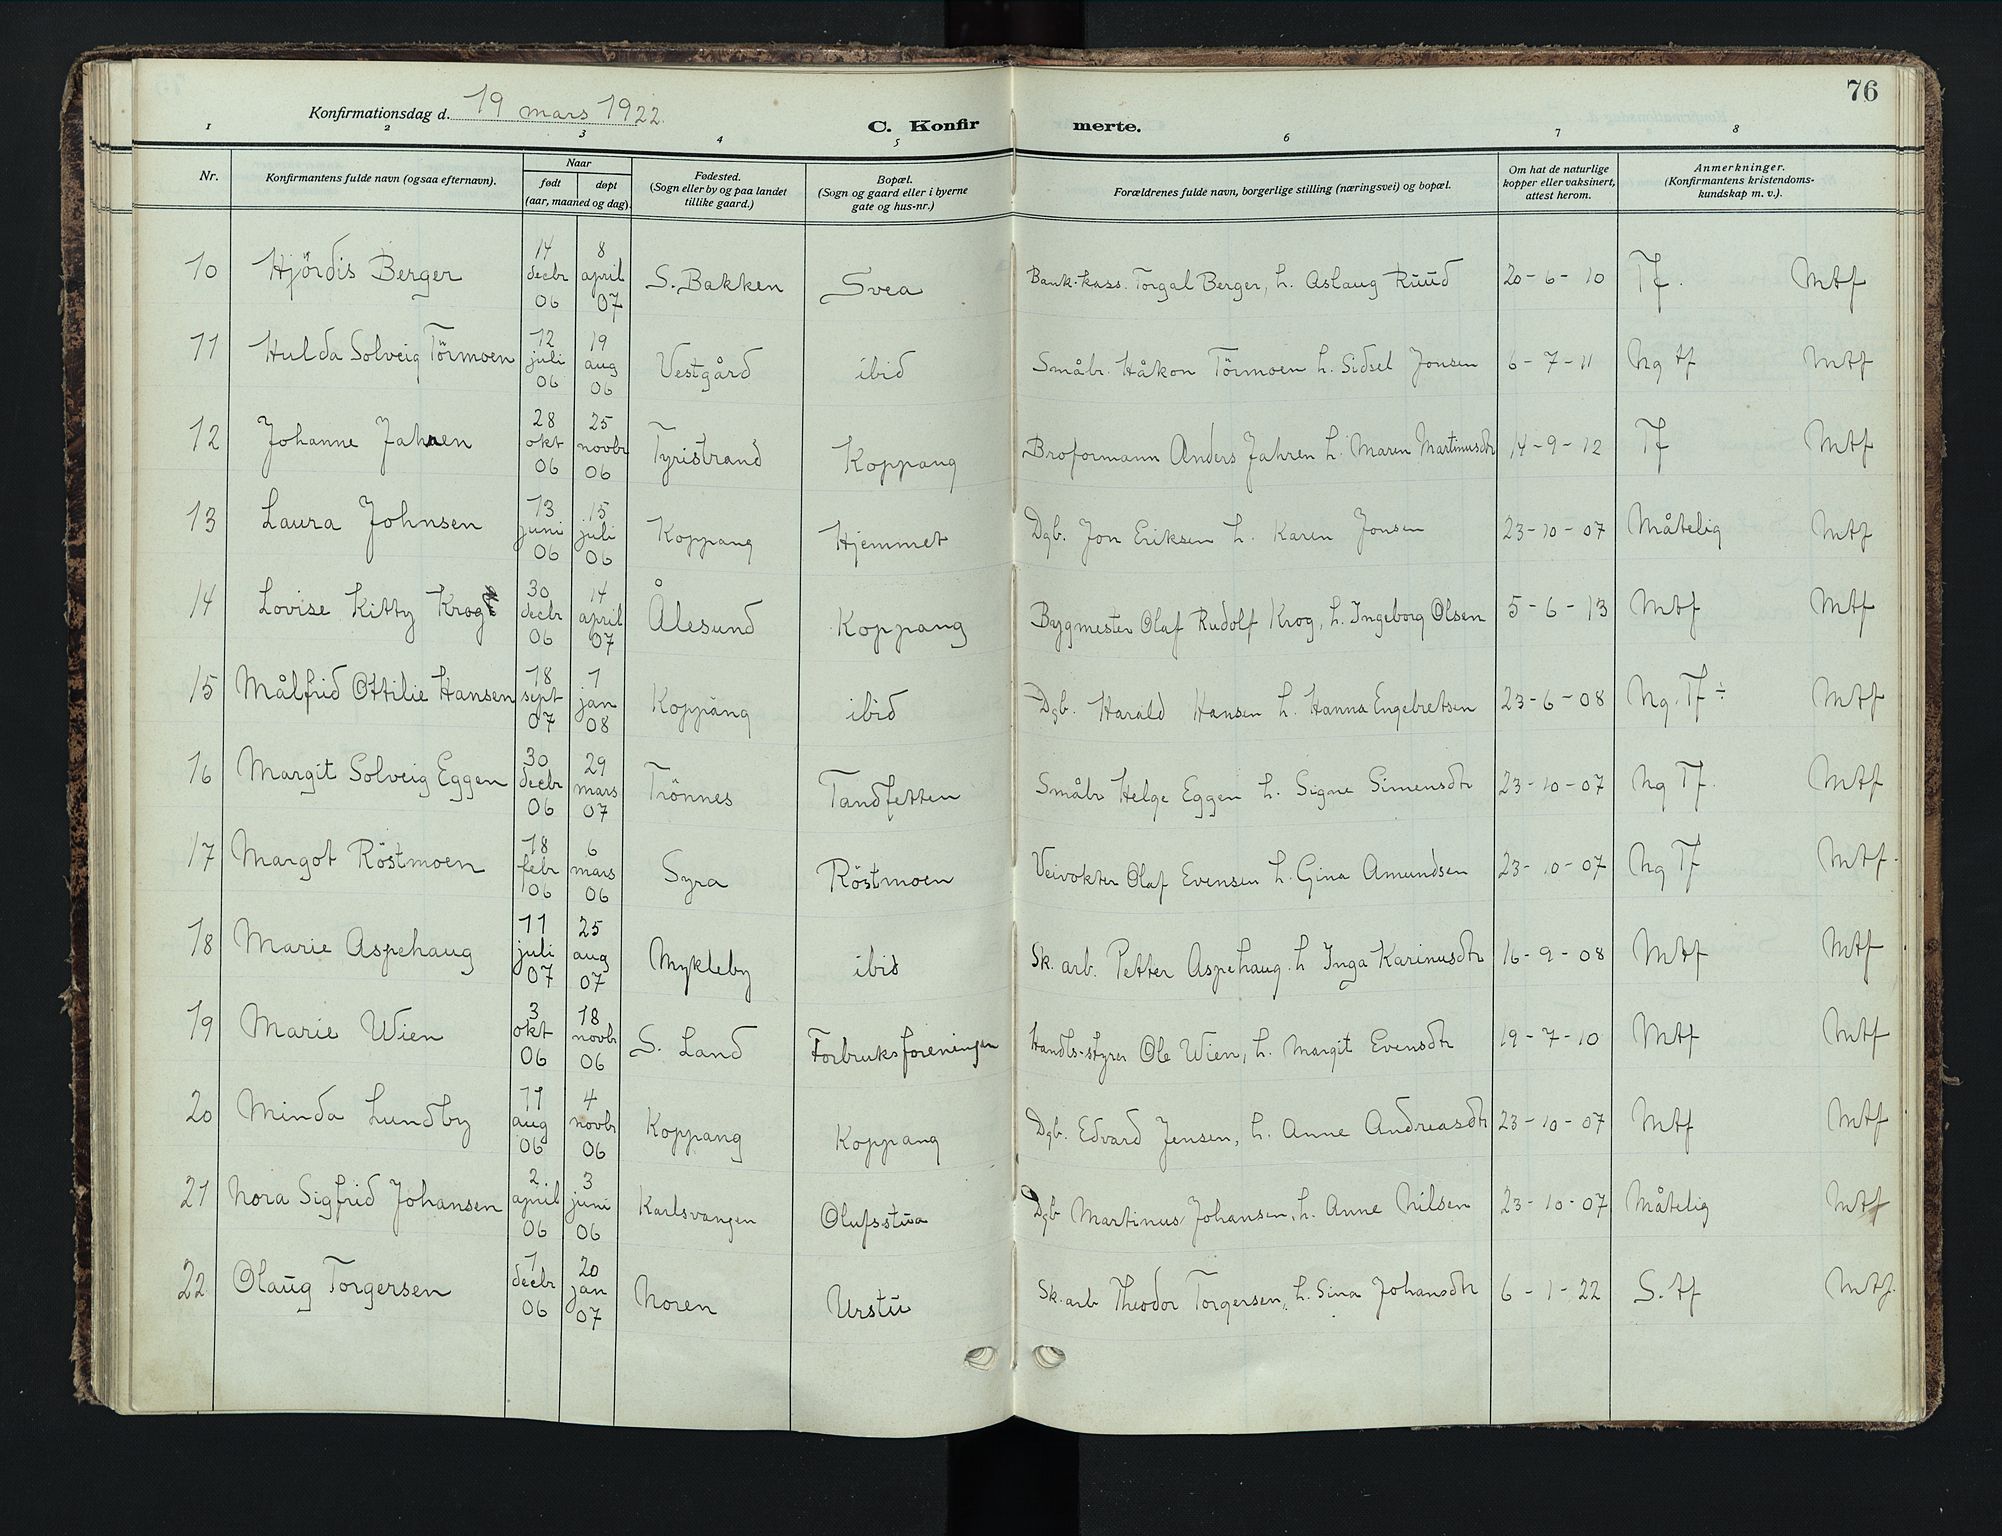 76
Konfirmationsdag d. 19 mars 1922.
C. Konfir merte.
1 2 3 4 5 6 7 8
Nr. Konfirmantens fulde navn (ogsaa efternavn). Naar født døpt (aar, maaned og dag). Fødested. (Sogn eller by og paa landet tillike gaard.) Bopæl. (Sogn og gaard eller i byerne gate og hus-nr.) Forældrenes fulde navn, borgerlige stilling (næringsvei) og bopæl. Om hat de naturlige kopper eller vaksinert, attest herom. Anmerkninger. (Konfirmantens kristendoms-kundskap m. v.).
10 Hjördis Berger 14 decbr 06 8 april 07 S. Bakken Svea Bank-kass. Torgal Berger, h. Aslaug Ruud 20-6-10 Tf. Mtf
11 Hulda Solveig Törmoen 12 juli 06 19 aug 06 Vestgård ibid Småbr. Håkon Törmoen h. Sidsel Jonsen 6-7-11 Ng tf Mtf
12 Johanne Jahren 28 okt 06 25 novbr 06 Tyristrand Koppang Broformann Anders Jahren h. Maren Martinusdtr 14-9-12 Tf Mtf
13 Laura Johnsen 13 juni 06 15 juli 06 Koppang Hjemmet Dgb. Jon Eriksen h. Karen Jonsen 23-10-07 Måtelig Mtf
14 Lovise Kitty Krog 30 decbr 06 14 april 07 Ålesund Koppang Bygmester Olaf Rudolf Krog, h. Ingeborg Olsen 5-6-13 Mtf Mtf
15 Målfrid Ottilie Hansen 18 sept 07 1 jan 08 Koppang ibid Dgb. Harald Hansen h. Hanna Engebretsen 23-6-08 Ng. Tf ÷ Mtf
16 Margit Solveig Eggen 30 decbr 06 29 mars 07 Trönnes Tandfetten Småbr Helge Eggen h. Signe Simensdtr 23-10-07 Ng Tf. Mtf
17 Margot Röstmoen 18 febr 06 6 mars 06 Syra Röstmoen Veivokter Olaf Evensen h. Gina Amundsen 23-10-07 Ng Tf Mtf.
18 Marie Aspehaug 11 juli 07 25 aug 07 Mykleby ibid Sk. arb. Petter Aspehaug. h Inga Karinusdtr 16-9-08 Mtf Mtf
19 Marie Wien 3 okt 06 18 novbr 06 S. Land Forbruksforeningen Handls-styrer Ole Wien, h. Margit Evensdtr 19-7-10 Mtf Mtf
20 Minda Lundby 11 aug 06 4 novbr 06 Koppang Koppang Dgb. Edvard Jensen, h. Anne Andreasdtr 23-10-07 Mtf Mtf
21 Nora Sigfrid Johansen 2. april 06 3 juni 06 Karlsvangen Olufsstua Dgb Martinus Johansen, h. Anne Nilsen 23-10-07 Måtelig Mtf
22 Olaug Torgersen 1 decbr 06 20 jan 07 Noren Urstu Sk. arb Theodor Torgersen, h. Sina Johansdtr 6-1-22 S. tf Mtf.